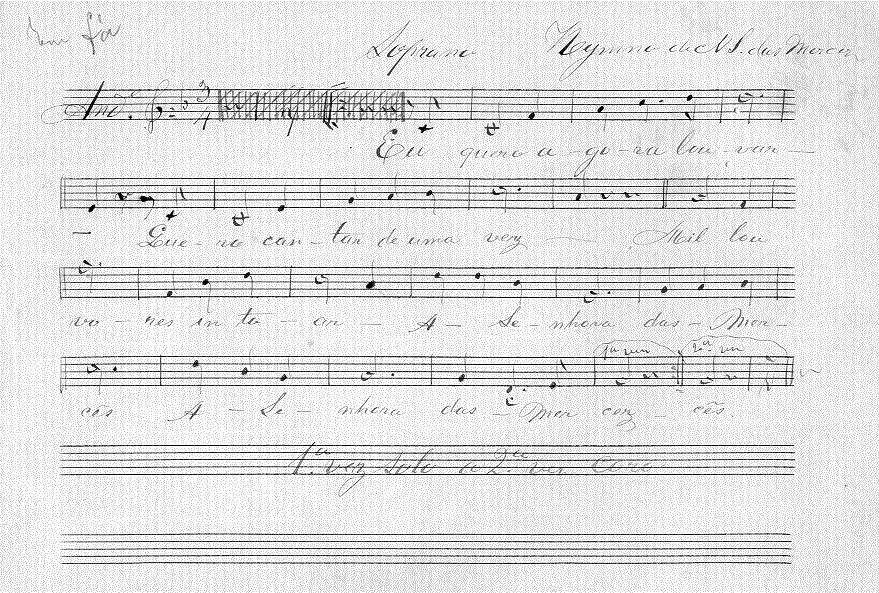 Soprano Hymno de N S. das Merces
And.e 3/4
Eu quero a - go - ra lou - var -
Que - ro can - tar de uma vez - Mil lou
vo - res in to - ar - A - Se - nhora das - Mer -
1a vez 2a vez
cês A - Se - nhora das - Mer cez - cês.
1.a vez solo a 2.a vez Coro